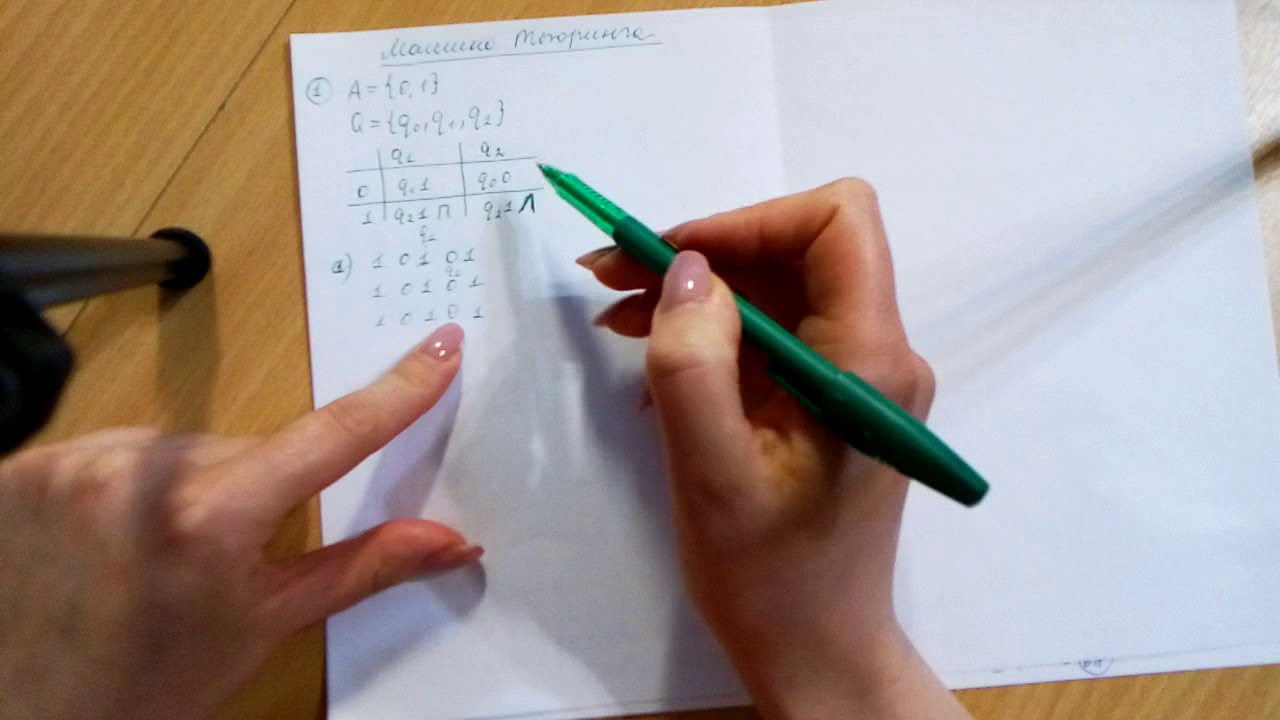 Машина Тьюринга
① A = {0, 1}
Q = {q₀, q₁, q₂}
q₁ q₂
0 q₁1 q₀0
1 q₂1П q₂1Л
а) 1 0 1 0 1
1 0 1 0 1
1 0 1 0 1